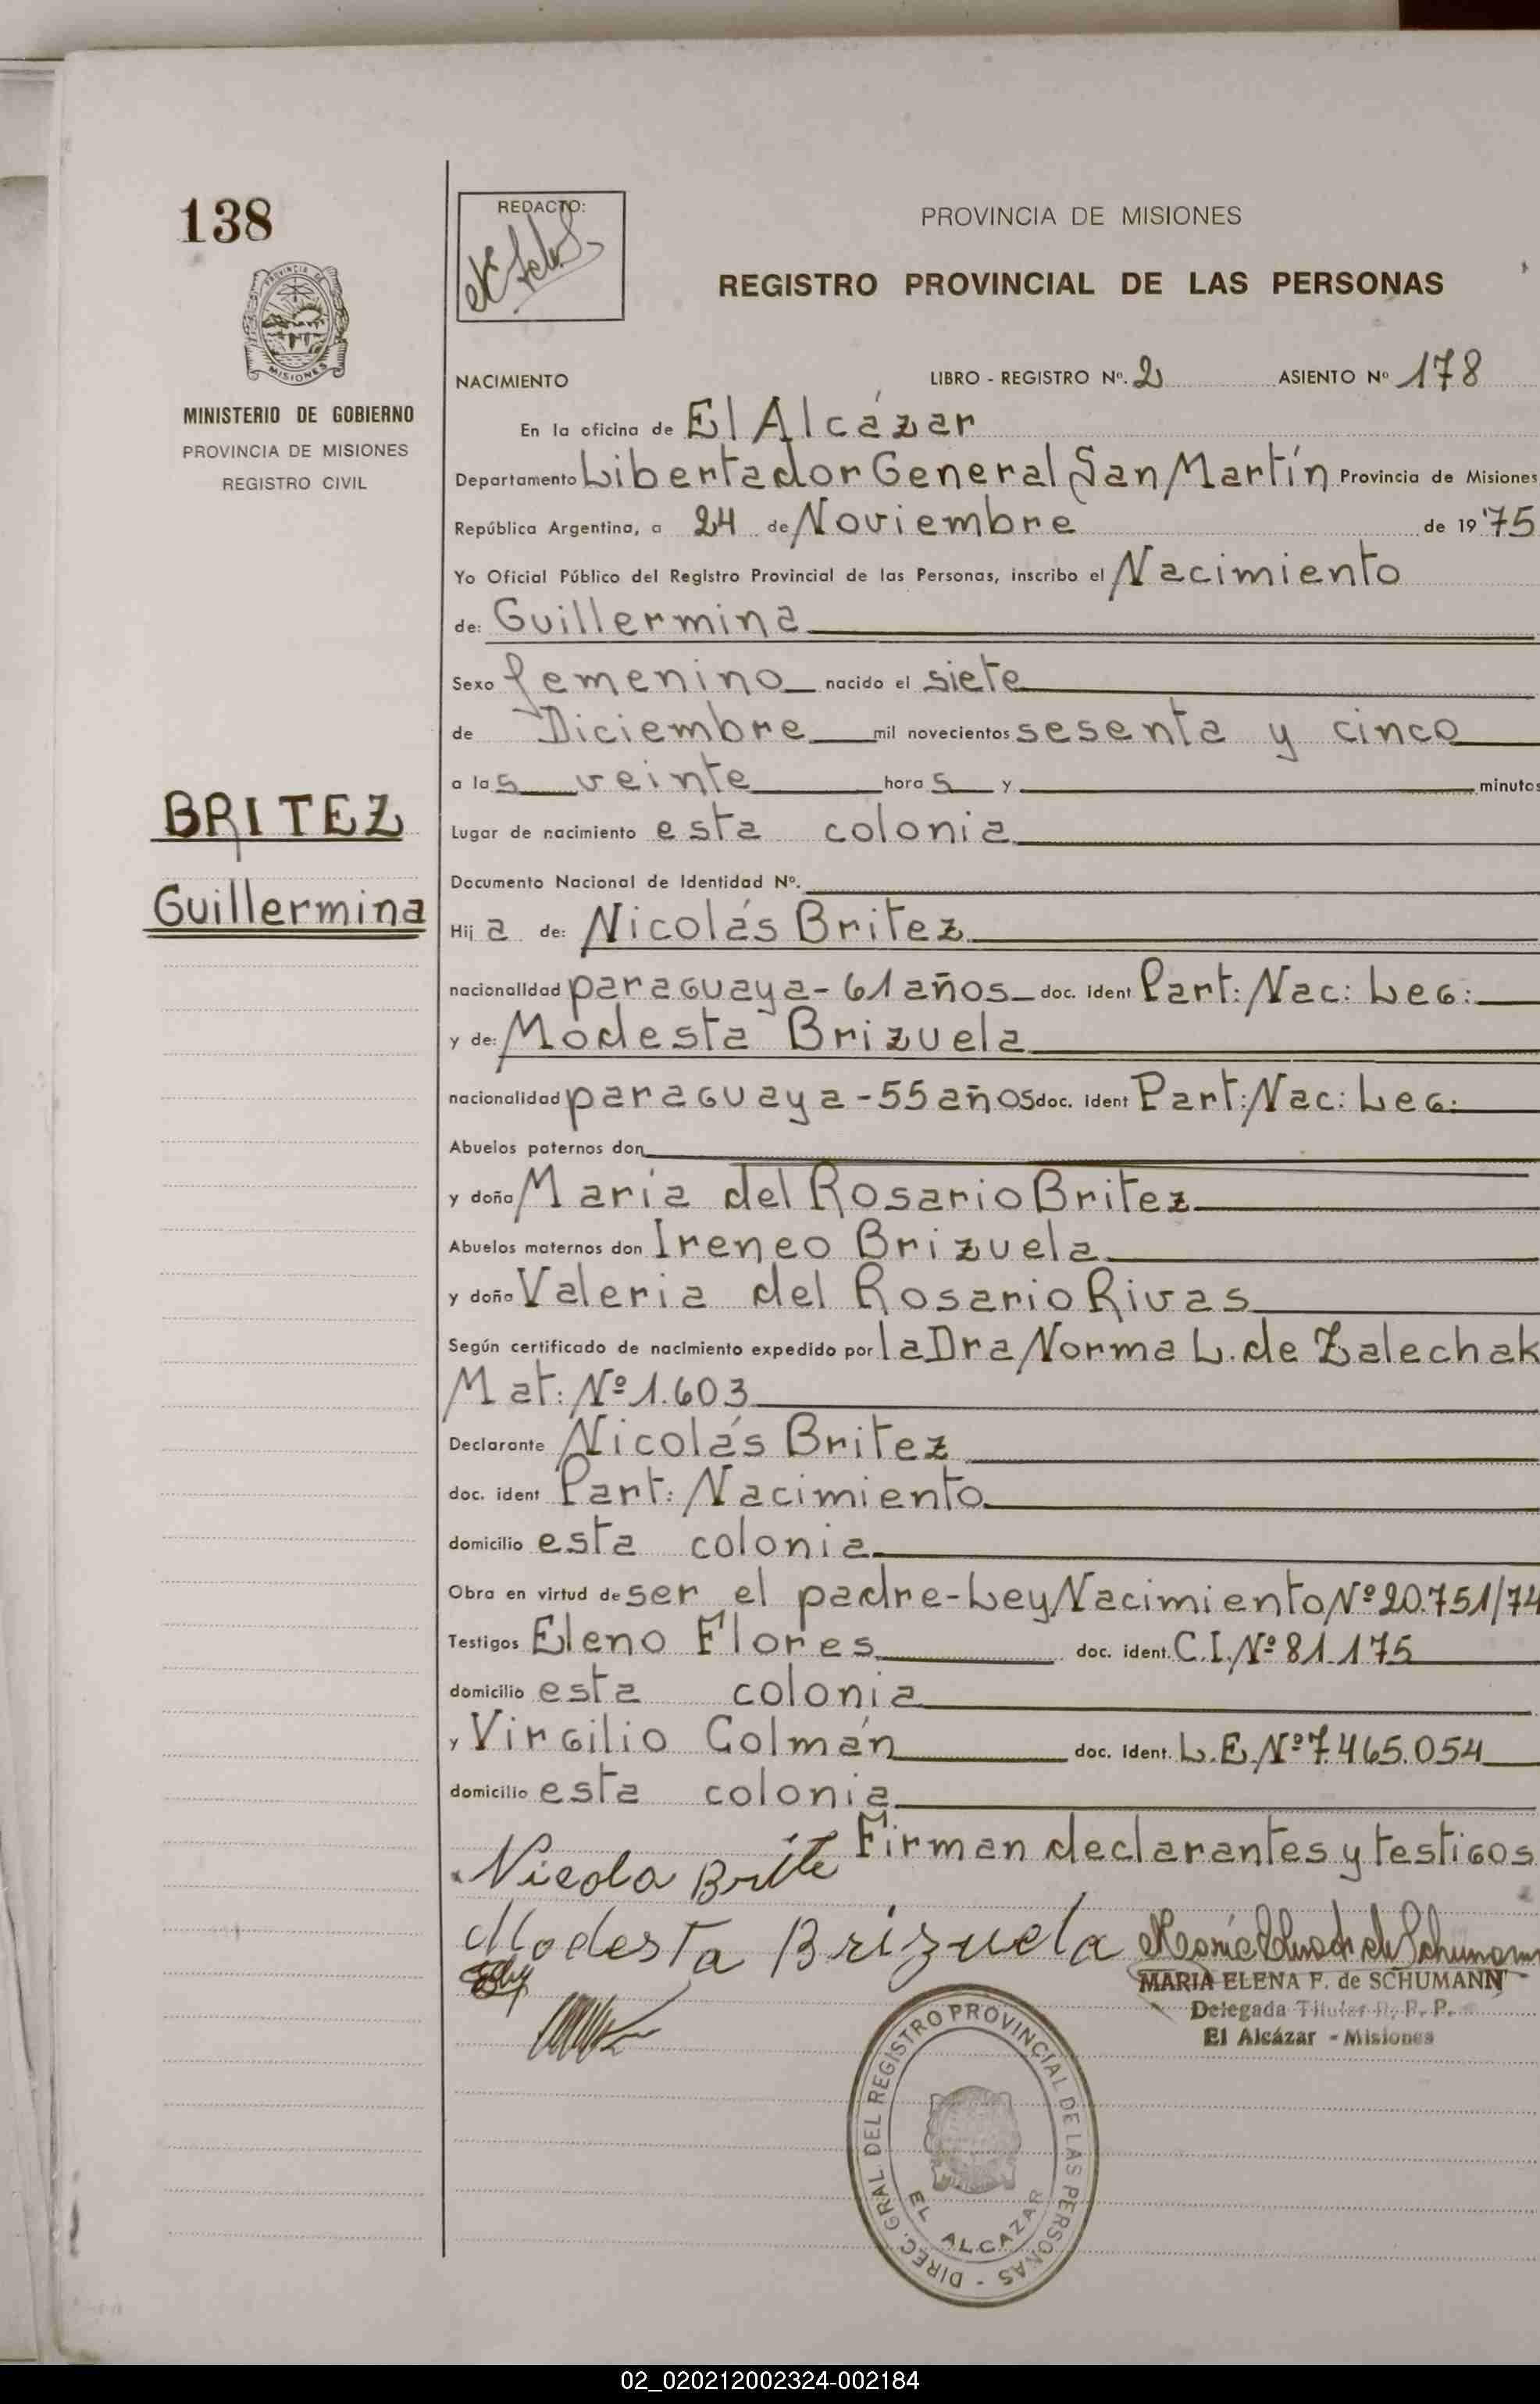 138
REDACTO:
PROVINCIA DE MISIONES
REGISTRO PROVINCIAL DE LAS PERSONAS
PROVINCIA DE
MISIONES
MINISTERIO DE GOBIERNO
PROVINCIA DE MISIONES
REGISTRO CIVIL
NACIMIENTO LIBRO - REGISTRO Nº. 2 ASIENTO Nº 178
En la oficina de El Alcázar
Departamento Libertador General San Martín Provincia de Misiones
República Argentina, a 24 de Noviembre de 19 75
Yo Oficial Público del Registro Provincial de las Personas, inscribo el Nacimiento
de: Guillermina
Sexo femenino nacido el siete
de Diciembre mil novecientos sesenta y cinco
a las veinte horas y minutos
BRITEZ
Lugar de nacimiento esta colonia
Documento Nacional de Identidad Nº.
Guillermina
Hija de: Nicolás Britez
nacionalidad paraguaya - 61 años doc. ident Part: Nac: Leg:
y de: Modesta Brizuela
nacionalidad paraguaya - 55 años doc. ident Part: Nac: Leg:
Abuelos paternos don
y doña María del Rosario Britez
Abuelos maternos don Ireneo Brizuela
y doña Valeria del Rosario Rivas
Según certificado de nacimiento expedido por la Dra Norma L. de Zalechak
Mat: Nº 1.603
Declarante Nicolás Britez
doc. ident Part: Nacimiento
domicilio esta colonia
Obra en virtud de ser el padre - Ley Nacimiento Nº 20.751/74
Testigos Eleno Flores doc. ident. C.I. Nº 81.175
domicilio esta colonia
y Virgilio Colmán doc. ident. L.E. Nº 7.465.054
domicilio esta colonia
Firman declarantes y testigos
Nicola Brite
Modesta Brizuela
MARIA ELENA F. de SCHUMANN
Delegada Titular R. P. P.
El Alcázar - Misiones
DIREC. GRAL. DEL REGISTRO PROVINCIAL DE LAS PERSONAS -
EL ALCAZAR
02_020212002324-002184